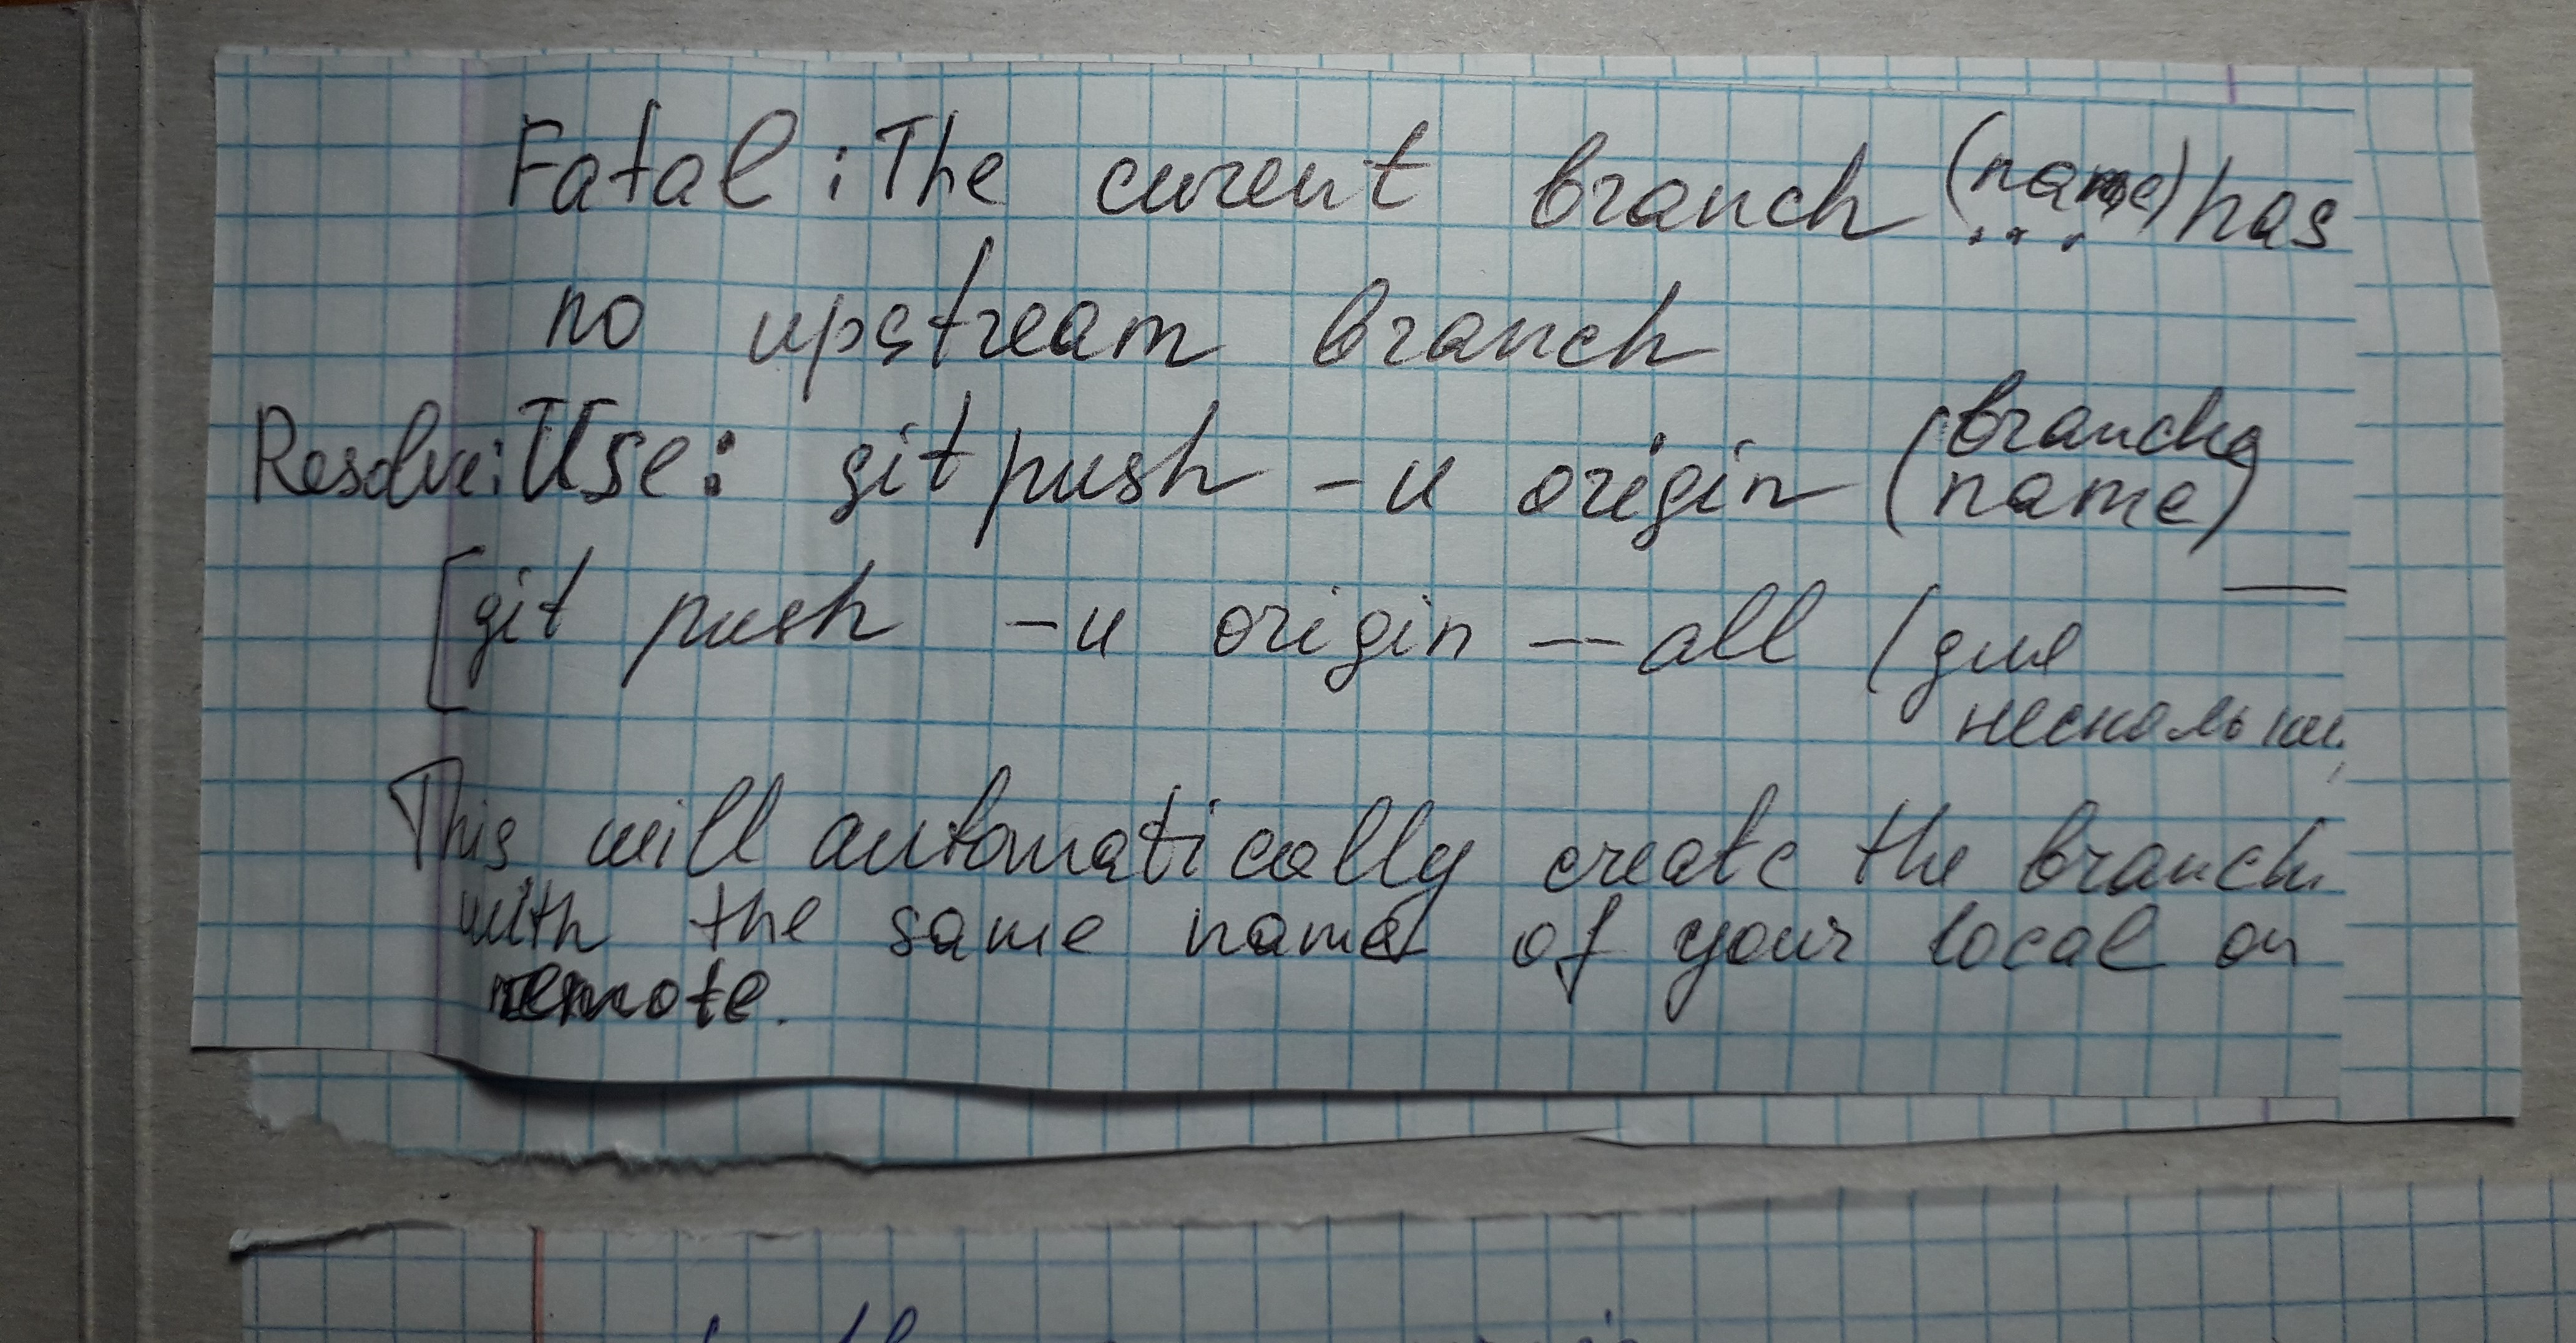 Fatal: The curent branch (name) has
...
no upstream branch
Resolve: Use: git push -u origin (branch name)
[git push -u origin --all (для
нескольки
This will automatically create the branch
with the same name of your local on
remote.